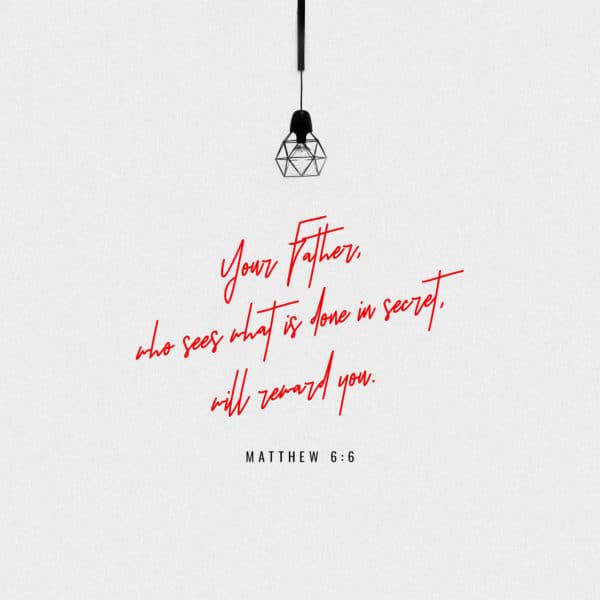 Your Father,
who sees what is done in secret,
will reward you.
MATTHEW 6:6